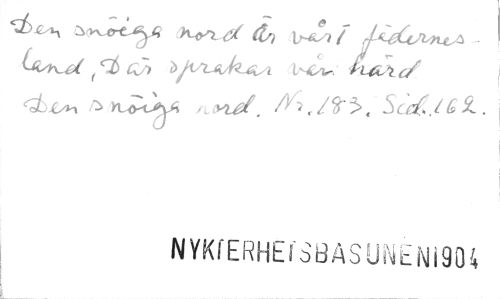 Den snöiga nord är vårt fädernes-
land, Där sprakar vår härd
Den snöiga nord. Nr. 183. Sid. 162.
NYKTERHETSBASUNEN 1904